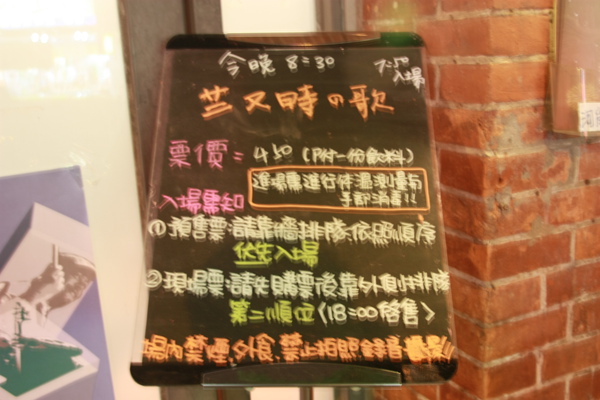 今晚 8:30
7:50
入場
芝又時の歌
票價: 450 (附一份飲料)
入場需知
進場需進行体溫測量与
手部消毒!!
① 預售票:請靠牆排隊,依照順序
優先入場
② 現場票:請先購票後靠外側排隊
第二順位 (18:00啟售)
場內禁煙、外食、禁止拍照錄音攝影!!